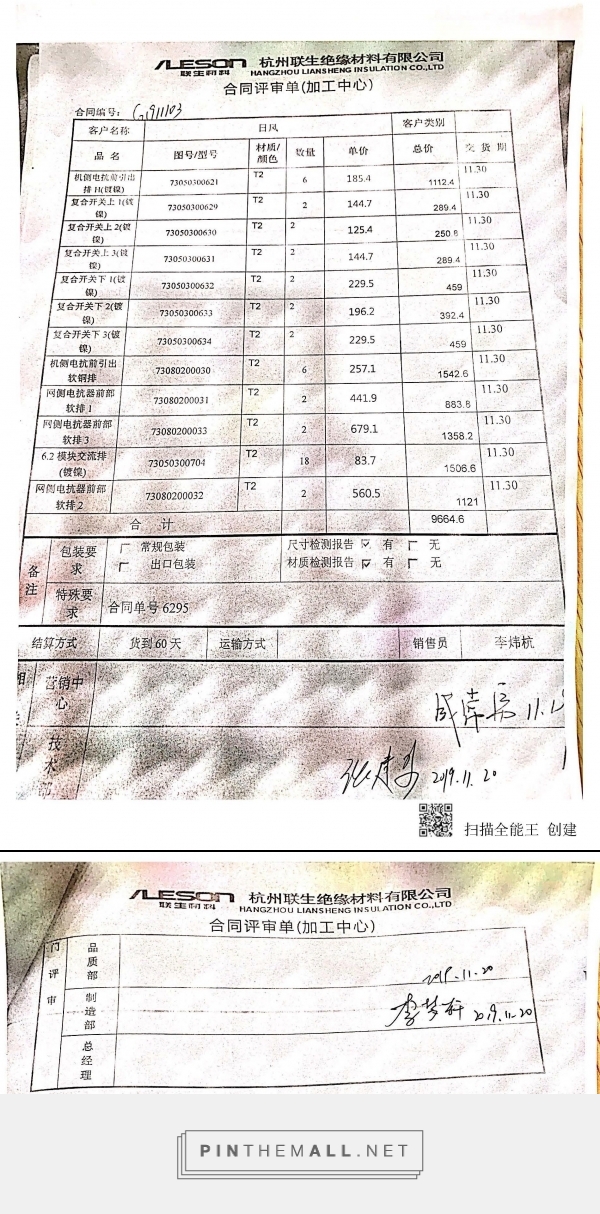 LESON 杭州联生绝缘材料有限公司
联生材料 HANGZHOU LIANSHENG INSULATION CO.,LTD
合同评审单(加工中心)
合同编号: G191103
客户名称 日风 客户类别
品名 图号/型号 材质/颜色 数量 单价 总价 交货期
机侧电抗前引出排 H(镀镍) 73050300621 T2 6 185.4 1112.4 11.30
复合开关上 1(镀镍) 73050300629 T2 2 144.7 289.4 11.30
复合开关上 2(镀镍) 73050300630 T2 2 125.4 250.8 11.30
复合开关上 3(镀镍) 73050300631 T2 2 144.7 289.4 11.30
复合开关下 1(镀镍) 73050300632 T2 2 229.5 459 11.30
复合开关下 2(镀镍) 73050300633 T2 2 196.2 392.4 11.30
复合开关下 3(镀镍) 73050300634 T2 2 229.5 459 11.30
机侧电抗前引出软铜排 73080200030 T2 6 257.1 1542.6 11.30
网侧电抗器前部软排 1 73080200031 T2 2 441.9 883.8 11.30
网侧电抗器前部软排 3 73080200033 T2 2 679.1 1358.2 11.30
6.2 模块交流排(镀镍) 73050300704 T2 18 83.7 1506.6 11.30
网侧电抗器前部软排 2 73080200032 T2 2 560.5 1121 11.30
合 计 9664.6
备注 包装要求 常规包装 尺寸检测报告 有 无
出口包装 材质检测报告 有 无
特殊要求 合同单号 6295
结算方式 货到 60 天 运输方式 销售员 李炜杭
营销中心 11.1
技术部 2019.11.20
扫描全能王 创建
LESON 杭州联生绝缘材料有限公司
联生材料 HANGZHOU LIANSHENG INSULATION CO.,LTD
合同评审单(加工中心)
门评审 品质部 2019.11.20
制造部 2019.11.20
总经理
PINTHEMALL.NET